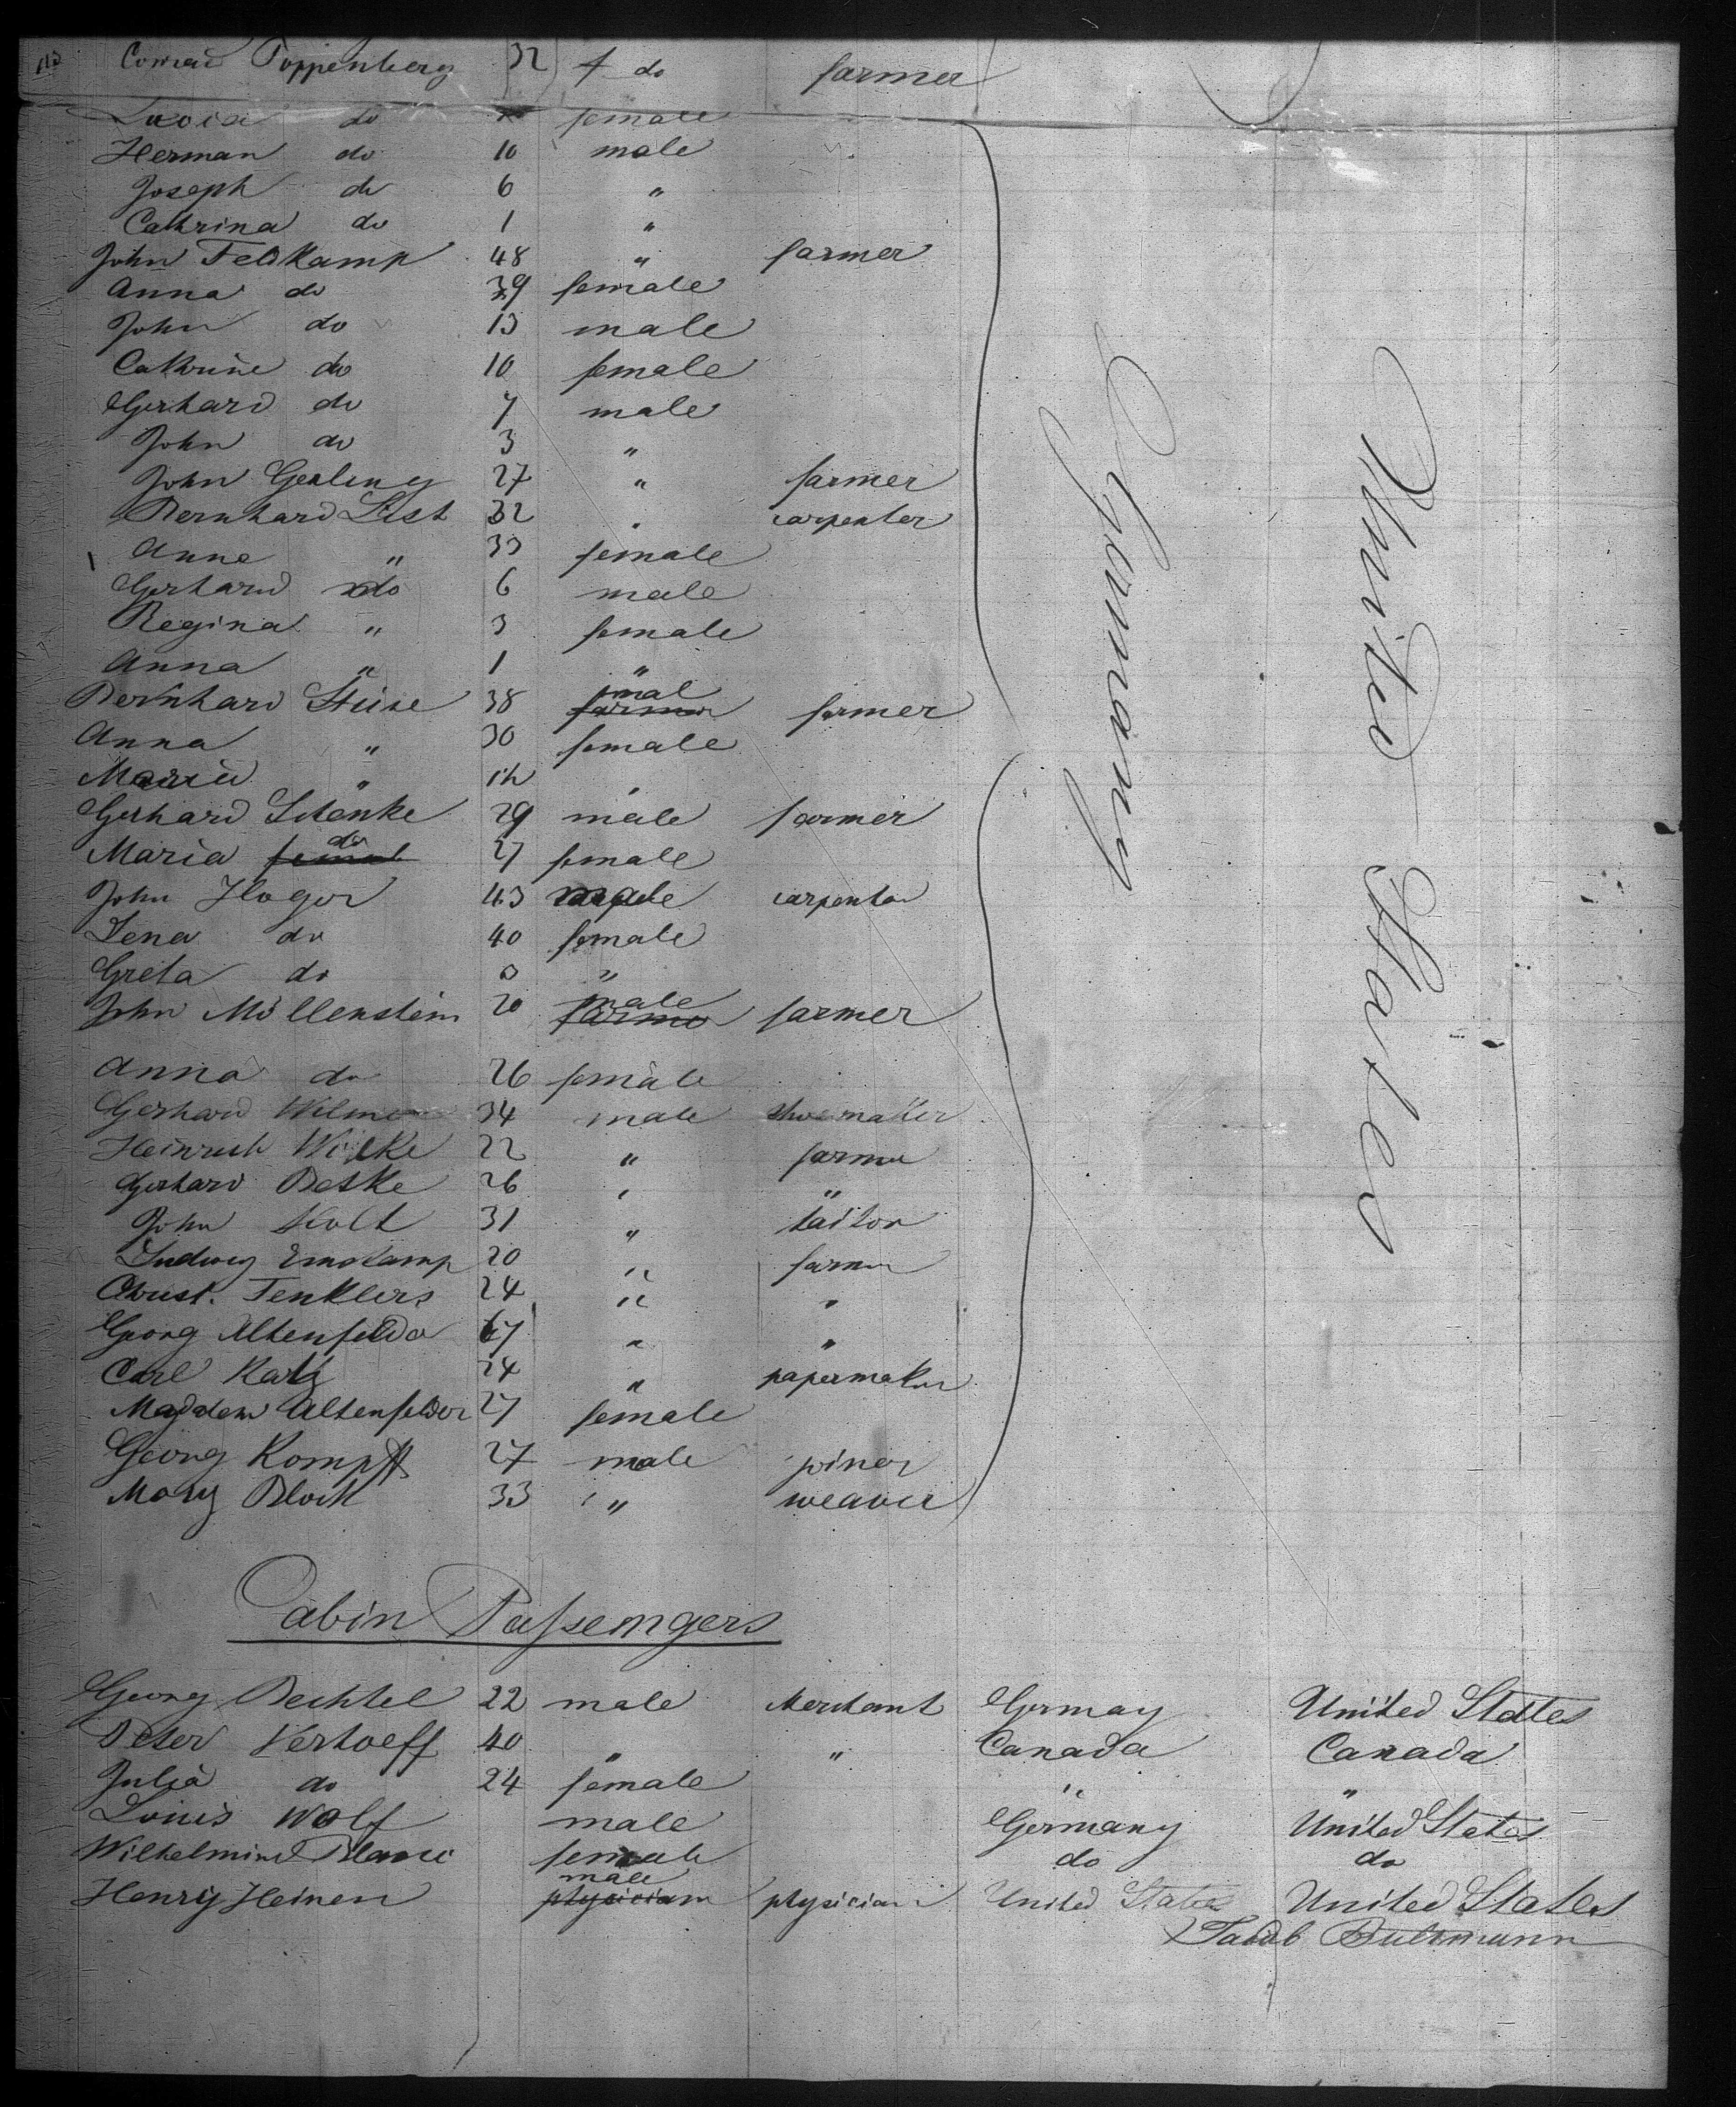 Conrad Poppenberg 32 f do farmer
Lucia do female
Herman do 10 male
Joseph do 6 "
Cathrina do 1 "
John Feldkamp 48 " farmer
Anna do 39 female
John do 13 male
Cathrine do 10 female
Gerhard do 7 male
John do 3 "
John Gerling 27 " farmer
Bernhard List 32 " carpenter
Anne " 33 female
Gerhard do 6 male
Regina " 3 female
Anna " 1 "
Bernhard Stüse 38 mal farmer farmer
Anna " 30 female
Maria " "
Gerhard Schenke 29 male farmer
Maria female do 27 female
John Hoger 43 male carpenter
Lena do 40 female
Greta do "
John Möllenstein 20 male farmer farmer
Anna do 26 female
Gerhard 34 male shoemaker
Heinrich Wilke 22 " farmer
Gerhard Betke 26 " "
John Holt 31 " tailor
Ludwig Emskamp 20 " farmer
Christ. Fenklers 24 " "
Georg Altenfelder 67 " "
Carl Katz 24 " papermaker
Magdlen Altenfelder 27 female
Georg Kompff 27 male joiner
Mary Block 33 " weaver
Germany
United States
Cabin Passemgers
Georg Bechtel 22 male Merchant Germay United States
Peter Verhoeff 40 " " Canada Canada
Julia do 24 female " "
Louis Wolf male Germany United States
Wilhelmine female do do
Henry Heinen male physician physician United States United States
Jacob Bultmann